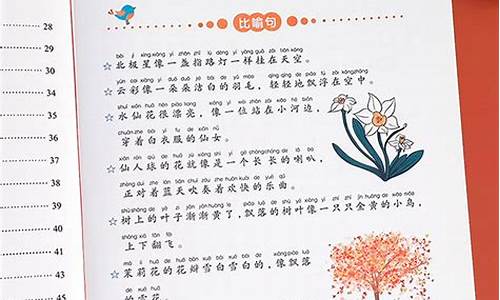 28
34
35
36
37
39
40
41
45
比喻句
běi jí xīng xiàng yì zhǎn zhǐ lù dēng yí yàng guà zài tiān kōng
☆北极星像一盏指路灯一样挂在天空。
yún cai xiàng yì duǒ duǒ jié bái de yǔ máo qīng qīng de piāo fú zài kōng zhōng
☆云彩像一朵朵洁白的羽毛，轻轻地飘浮在空中。
shuǐ xiān huā hěn piào liang xiàng yí wèi zhàn zài xiǎo hé biān
☆水仙花很漂亮，像一位站在小河边，
chuān zhe bái yī fu de xiān nǚ
穿着白衣服的仙女。
xiān rén qiú de huā jiù xiàng shì yí gè cháng cháng de lǎ ba
☆仙人球的花就像是一个长长的喇叭，
zhèng duì zhe lán tiān chuī zòu zhe huān kuài de yuè qǔ
正对着蓝天吹奏着欢快的乐曲。
shù shàng de yè zi jiàn jiàn huáng le piāo luò de shù yè xiàng yì zhī zhī jīn huáng de xiǎo niǎo
☆树上的叶子渐渐黄了，飘落的树叶像一只只金黄的小鸟，
shàng xià fān fēi
上下翻飞。
mò lì huā de huā bàn xuě bái xuě bái de xiàng piāo luò
☆茉莉花的花瓣雪白雪白的，像飘落
的雪花。